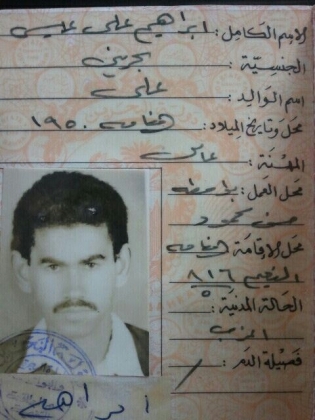 الاسم الكامل: ابراهيم علي عايس
الجنسية: بحريني
اسم الوالد: علي
محل وتاريخ الميلاد: المنامه ١٩٥٠
المهنة: عامل
محل العمل:
حسن محمود
محل الإقامة: المنامه
النعيم ٨١٦
الحالة المدنية:
اعزب
فصيلة الدم:
ابراهيم